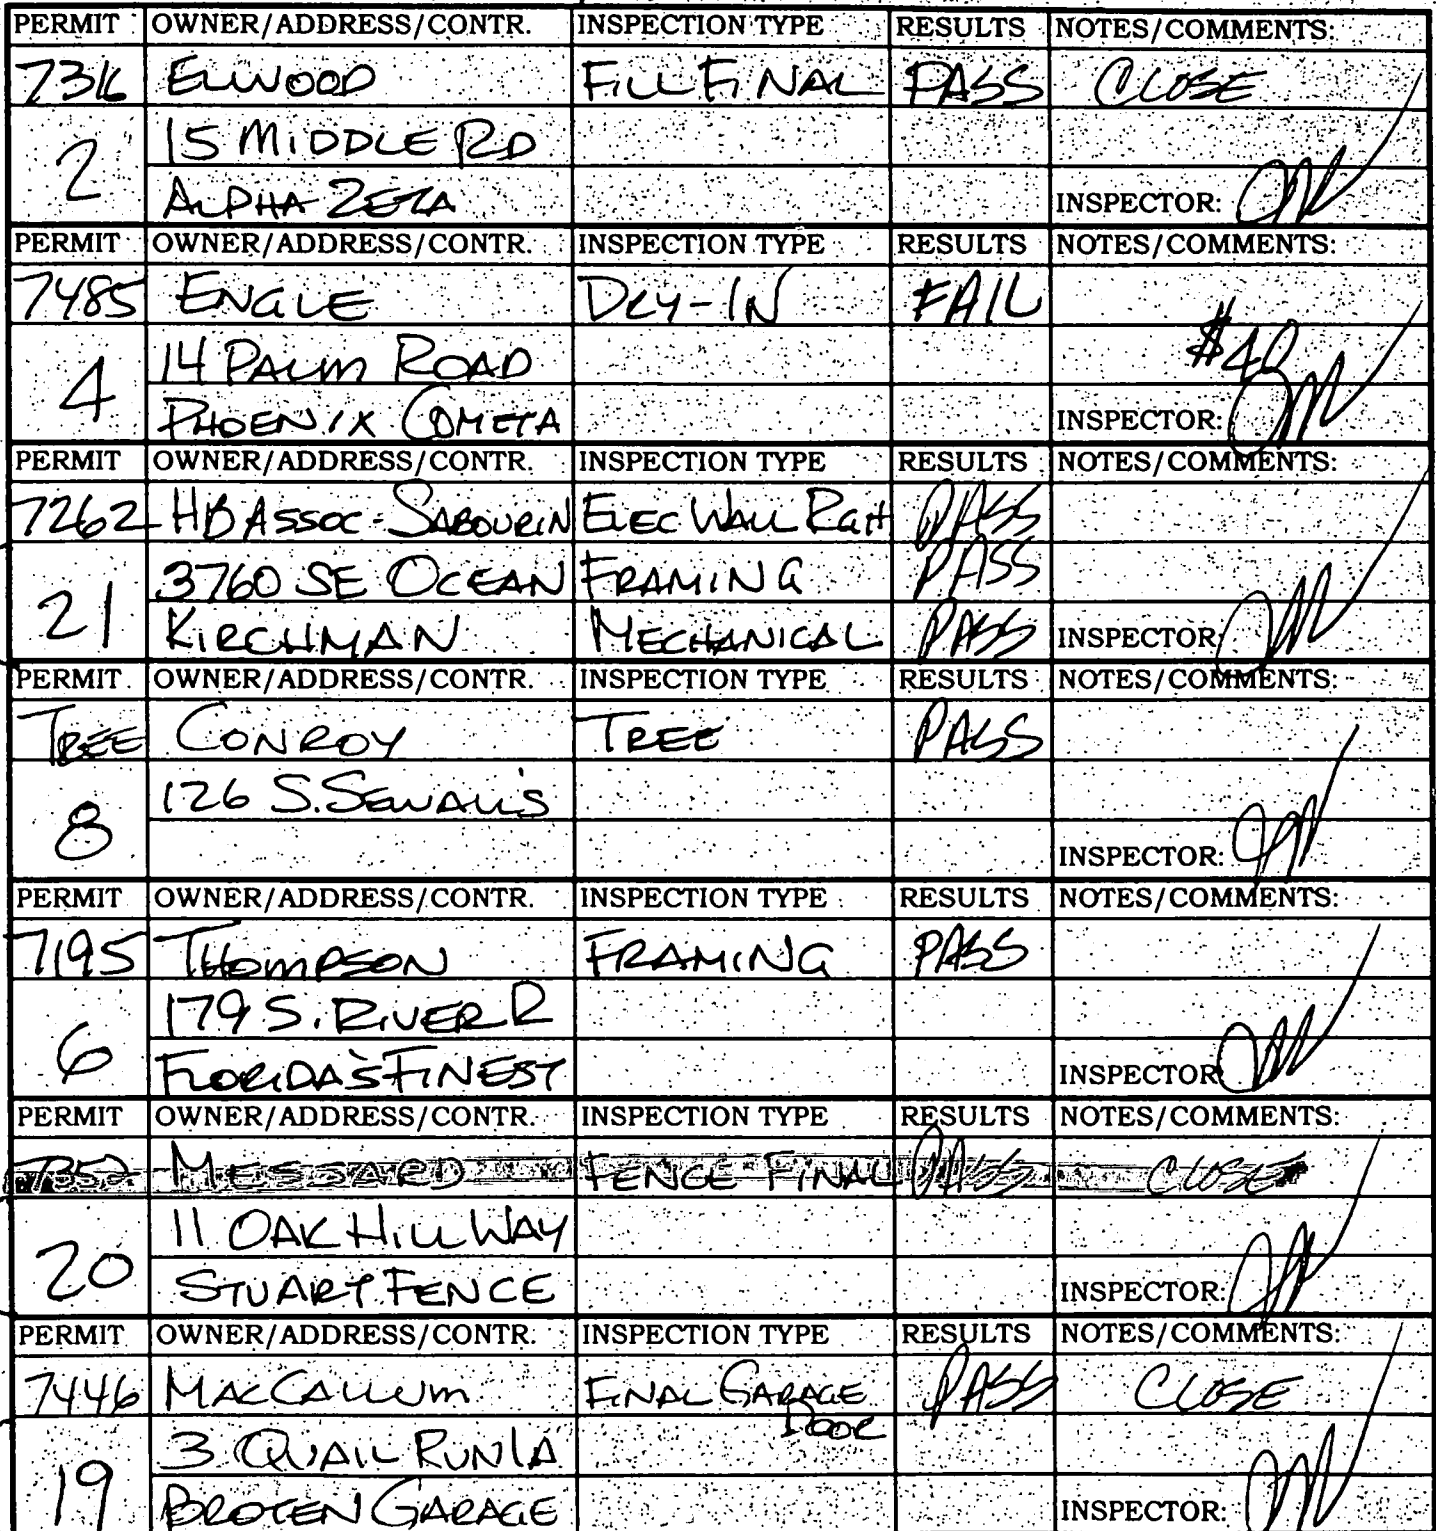 PERMIT OWNER/ADDRESS/CONTR. INSPECTION TYPE RESULTS NOTES/COMMENTS:
7316 ELWOOD FILL FINAL PASS CLOSE
2 15 MIDDLE RD
ALPHA ZETA INSPECTOR:
PERMIT OWNER/ADDRESS/CONTR. INSPECTION TYPE RESULTS NOTES/COMMENTS:
7485 ENGLE DRY-IN FAIL
4 14 PALM ROAD $40
PHOENIX COMETA INSPECTOR:
PERMIT OWNER/ADDRESS/CONTR. INSPECTION TYPE RESULTS NOTES/COMMENTS:
7262 HB ASSOC-SABOURIN ELEC WALL RGH PASS
21 3760 SE OCEAN FRAMING PASS
KIRCHMAN MECHANICAL PASS INSPECTOR:
PERMIT OWNER/ADDRESS/CONTR. INSPECTION TYPE RESULTS NOTES/COMMENTS:
TREE CONROY TREE PASS
8 126 S. SEWALL'S
INSPECTOR:
PERMIT OWNER/ADDRESS/CONTR. INSPECTION TYPE RESULTS NOTES/COMMENTS:
7195 THOMPSON FRAMING PASS
6 179 S. RIVER R
FLORIDA'S FINEST INSPECTOR
PERMIT OWNER/ADDRESS/CONTR. INSPECTION TYPE RESULTS NOTES/COMMENTS:
7352 MESSARD FENCE FINAL PASS CLOSE
20 11 OAK HILL WAY
STUART FENCE INSPECTOR:
PERMIT OWNER/ADDRESS/CONTR. INSPECTION TYPE RESULTS NOTES/COMMENTS:
7446 MACCALLUM FINAL GARAGE PASS CLOSE
DOOR
19 3 QUAIL RUN LA
BROTEN GARAGE INSPECTOR: